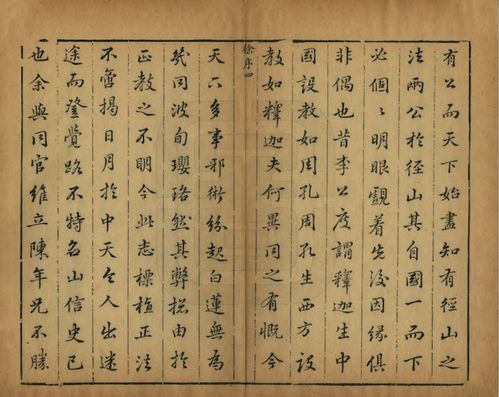 有公而天下始盡知有徑山之
法兩公於徑山其自國一而下
必個〻明眼覷着先後因緣俱
非偶也昔李公度謂釋迦生中
國設教如周孔周孔生西方設
教如釋迦夫何異同之有慨今
徐序 四
天下多事邪術紛起白蓮無為
幾同波旬瓔珞然其弊總由於
正教之不明今此志標植正法
不啻揭日月於中天令人出迷
途而登覺路不特名山信史已
也余與同官維立陳年兄不勝